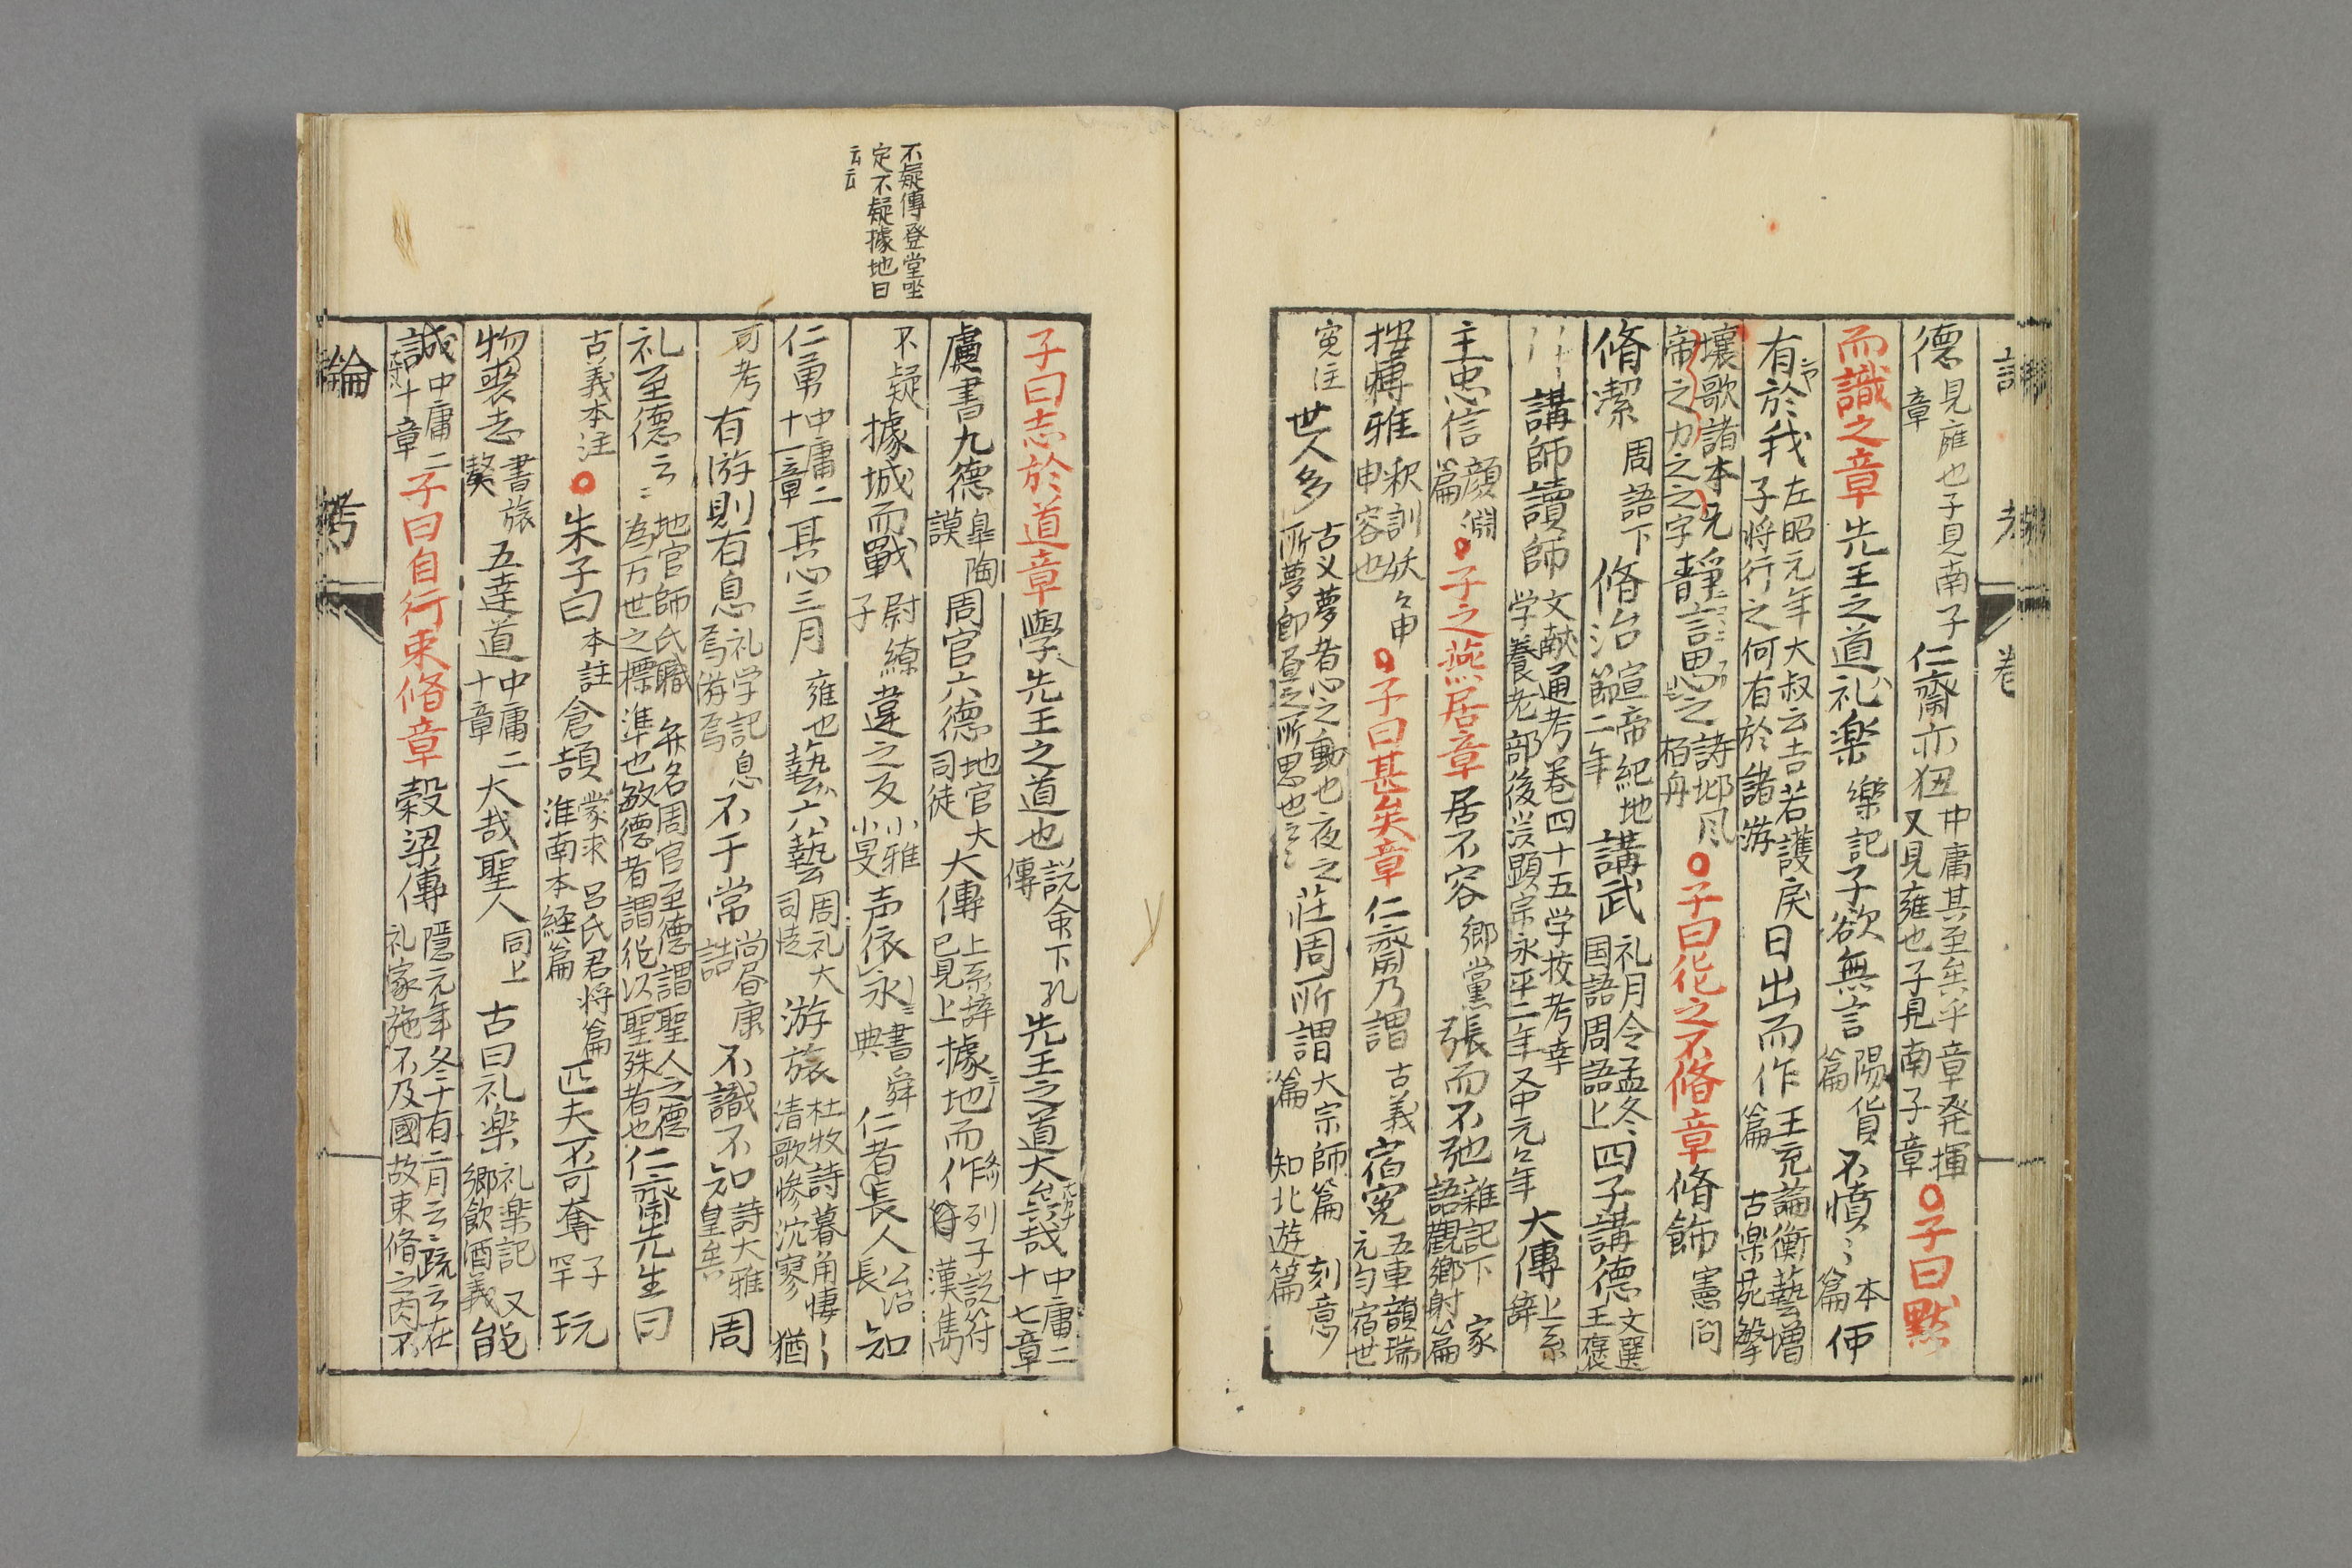 德見雍也子見南子章仁齋亦狃中庸其至矣乎章発揮又見雍也子見南子章○子曰默
而識之章先王之道礼楽樂記子欲無言陽貨篇不憤〻本篇
有於我左昭元年大叔云吉若護戾子將行之何有於諸游日出而作王充論衡藝增篇古楽苑擊
壤歌諸本元帝之力之之字靜言思之詩邶風栢舟○子曰德之不脩章脩飾憲問
脩潔周語下脩治宣帝紀地節二年講武礼月令孟冬国語周語上四子講德文選王褒
講師讀師文献通考巻四十五学校考幸学養老部後漢顕宗永平二年又中元々年大傳上系辞
主忠信顔淵篇○子之燕居章居不容鄉黨張而不弛雜記下家語觀鄉射篇
雅釈訓妖々申申容也○子曰甚矣章仁齋乃謂古義宿寃五車韻瑞元匀宿世
寃注世人多古义夢者心之動也夜之所夢即昼之所思也云〻莊周所謂大宗師篇刻意篇知北遊篇
不疑傳登堂坐
定不疑據地曰
云云
子曰志於道章學先王之道也説余下孔傳先王之道大哉中庸二十七章
虞書九德皐陶謨周官六德地官大司徒大傳上系辞已見上據地而作列子説符漢雋
不疑據城而戰尉繚子違之反小雅小旻声依永書舜典仁者長人公治長知
仁勇中庸二十章其心三月雍也藝六藝周礼大司徒游旅杜牧詩暮角悽清歌慘沈寥猶
可考有游則有息礼学記息焉游焉不于常尚書康誥不識不知詩大雅皇矣周
礼至德云〻地官師氏職為万世之標準也敏德者謂從以聖殊者也仁齋先生曰
古義本注○朱子曰本註倉頡蒙求呂氏君将篇淮南本経篇匹夫不可奪子罕玩
物喪志書旅獒五達道中庸二十章大哉聖人同上古曰礼楽礼楽記又鄉飲酒義能
誠中庸二十章子曰自行束脩章穀梁傳隱元年冬十有二月云〻疏云在礼家施不及國故束脩之肉不
論